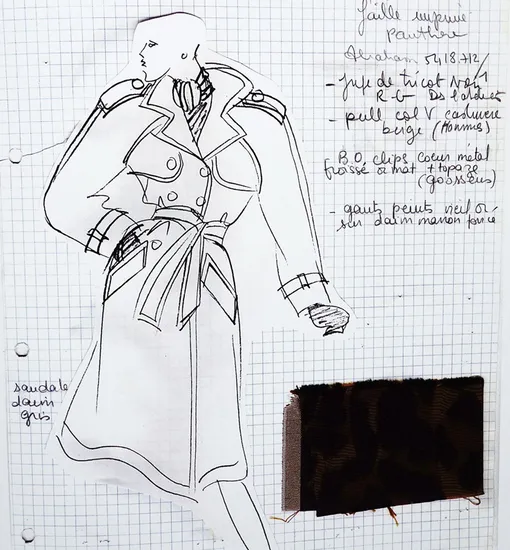 faille imprimé
panthère
Abraham 5418.712/
- Jupe de tricot Noir
R.G- Ds
- pull col V cashmere
beige (Hommes)
B.O. clips coeur métal
froissé or mat + topaze
(goossens)
- gants peints vieil or
sur daim marron foncé
sandale
daim
gris